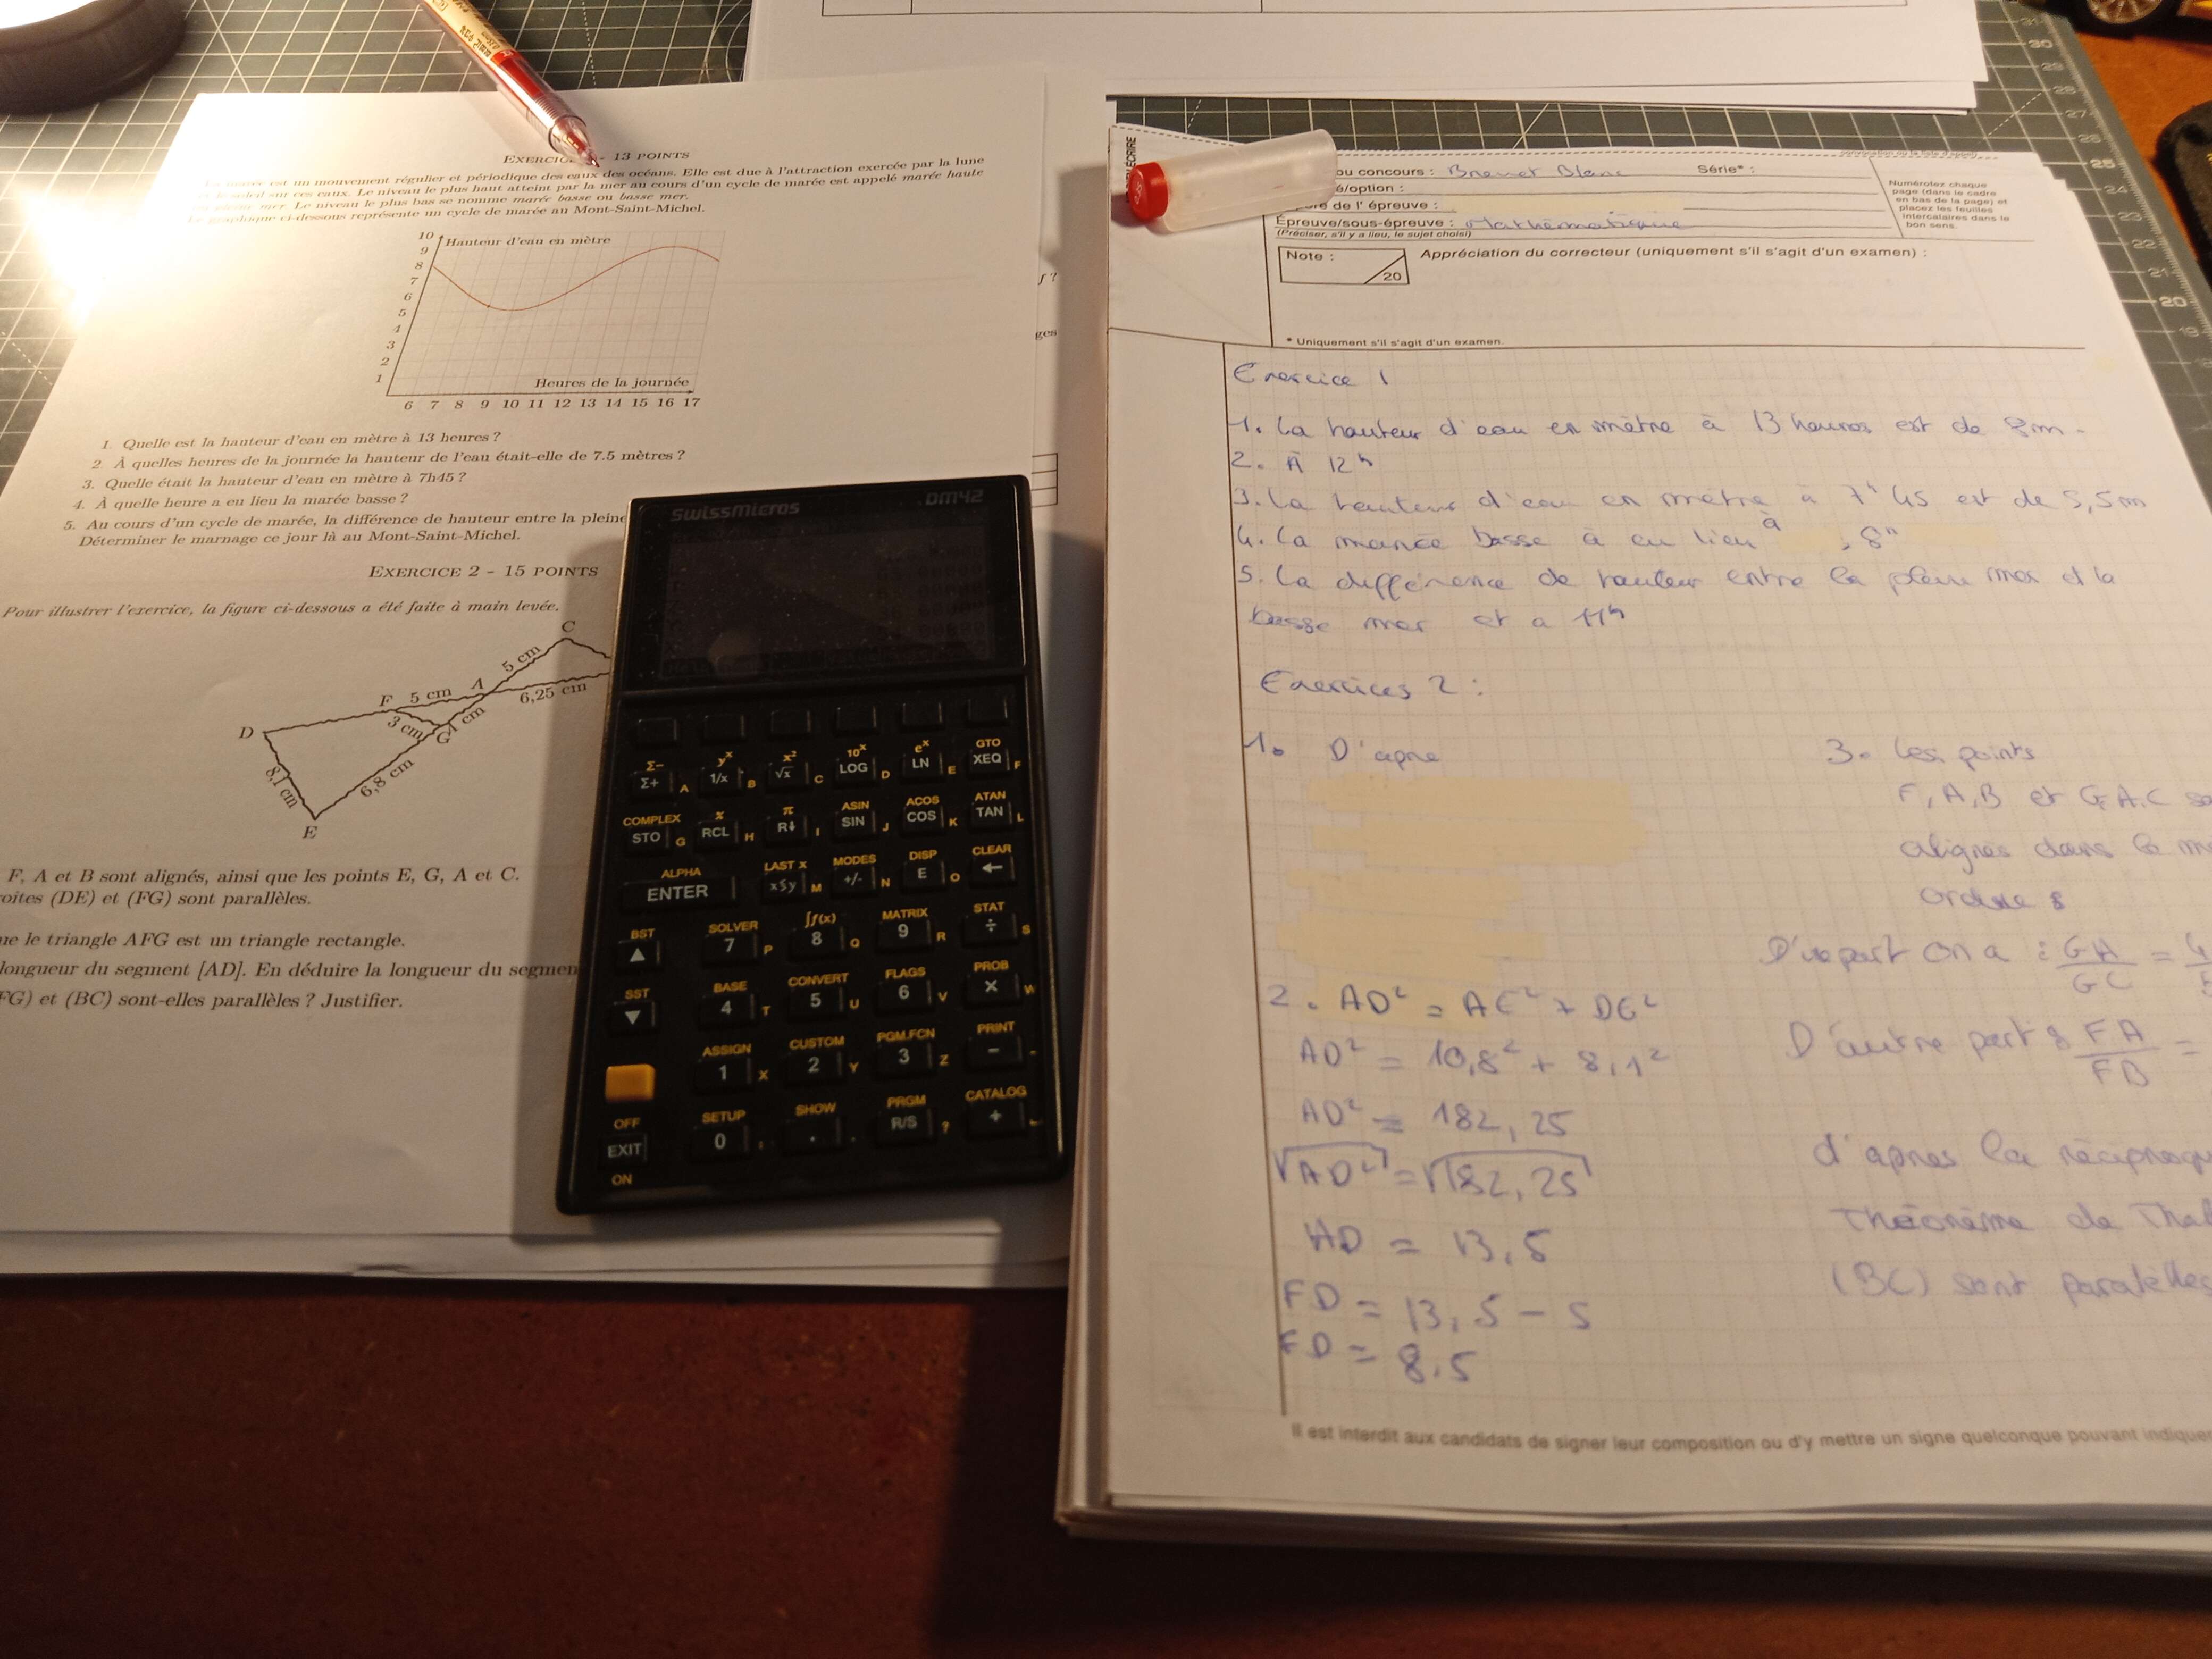 13 POINTS
est un mouvement régulier et périodique des eaux des océans. Elle est due à l'attraction exercée par la lune
le soleil sur ces eaux. Le niveau le plus haut atteint par la mer au cours d'un cycle de marée est appelé marée haute
mer. Le niveau le plus bas se nomme marée basse ou basse mer.
Le graphique ci-dessous représente un cycle de marée au Mont-Saint-Michel.
Hauteur d'eau en mètre
10
9
8
7
6
5
4
3
2
1
Heures de la journée
6 7 8 9 10 11 12 13 14 15 16 17
1. Quelle est la hauteur d'eau en mètre à 13 heures ?
2 À quelles heures de la journée la hauteur de l'eau était-elle de 7.5 mètres ?
3. Quelle était la hauteur d'eau en mètre à 7h45 ?
4. À quelle heure a eu lieu la marée basse ?
5. Au cours d'un cycle de marée, la différence de hauteur entre la pleine
Déterminer le marnage ce jour là au Mont-Saint-Michel.
EXERCICE 2 - 15 POINTS
Pour illustrer l'exercice, la figure ci-dessous a été faite à main levée.
C
5 cm
A
F 5 cm
6,25 cm
D
3 cm
G
cm
8,1 cm
6,8 cm
E
F, A et B sont alignés, ainsi que les points E, G, A et C.
oites (DE) et (FG) sont parallèles.
ue le triangle AFG est un triangle rectangle.
longueur du segment [AD]. En déduire la longueur du segmen
FG) et (BC) sont-elles parallèles ? Justifier.
f ?
ges
swissmicros DM42
Σ- y^x x² 10^x e^x GTO
Σ+ A 1/x B √x C LOG D LN E XEQ F
COMPLEX % π ASIN ACOS ATAN
STO G RCL H R↓ I SIN J COS K TAN L
ALPHA LAST x MODES DISP CLEAR
ENTER x≶y M +/- N E O ←
BST SOLVER ∫f(x) MATRIX STAT
▲ 7 P 8 Q 9 R ÷ S
SST BASE CONVERT FLAGS PROB
▼ 4 T 5 U 6 V × W
ASSIGN CUSTOM PGM.FCN PRINT
1 X 2 Y 3 Z − -
OFF SETUP SHOW PRGM CATALOG
EXIT 0 : . . R/S ? +
ON
ÉCRIRE
ou concours : Brevet Blanc Série* :
é/option :
de l' épreuve :
Épreuve/sous-épreuve : Mathématique
(Préciser, s'il y a lieu, le sujet choisi)
Numérotez chaque
page (dans le cadre
en bas de la page) et
placez les feuilles
intercalaires dans le
bon sens.
Note :
20
Appréciation du correcteur (uniquement s'il s'agit d'un examen) :
* Uniquement s'il s'agit d'un examen.
Exercice 1
1. La hauteur d'eau en mètre à 13 heures est de 8m.
2. À 12h
3. La hauteur d'eau en mètre à 7h 45 est de 5,5m
4. La marée basse à eu lieu à , 8h
5. La différence de hauteur entre la pleine mer et la
basse mer et a 11h
Exercices 2 :
1. D'apre
2. AD² = AE² + DE²
AD² = 10,8² + 8,1²
AD² = 182,25
√AD² = √182,25
AD = 13,5
FD = 13,5 - 5
FD = 8.5
3. Les points
F, A, B et G, A, C so
alignés dans le m
ordre :
D'une part on a : GA/GC = 4
D'autre part : FA/FB =
d'apres la réciproqu
Théorème de Thal
(BC) sont parallèles
Il est interdit aux candidats de signer leur composition ou d'y mettre un signe quelconque pouvant indiquer
31
30
29
28
27
26
25
24
23
22
21
20
19